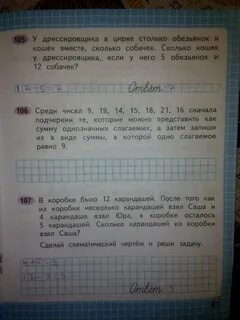 105 У дрессировщика в цирке столько обезьянок и
кошек вместе, сколько собачек. Сколько кошек
у дрессировщика, если у него 5 обезьянок и
12 собачек?
Ответ: 7
106 Среди чисел 9, 19, 14, 15, 18, 21, 16 сначала
подчеркни те, которые можно представить как
сумму однозначных слагаемых, а затем запиши
их в виде суммы, в которой одно слагаемое
равно 9.
107 В коробке было 12 карандашей. После того как
из коробки несколько карандашей взял Саша и
4 карандаша взял Юра, в коробке осталось
5 карандашей. Сколько карандашей из коробки
взял Саша?
Сделай схематический чертёж и реши задачу.
Ответ: 3